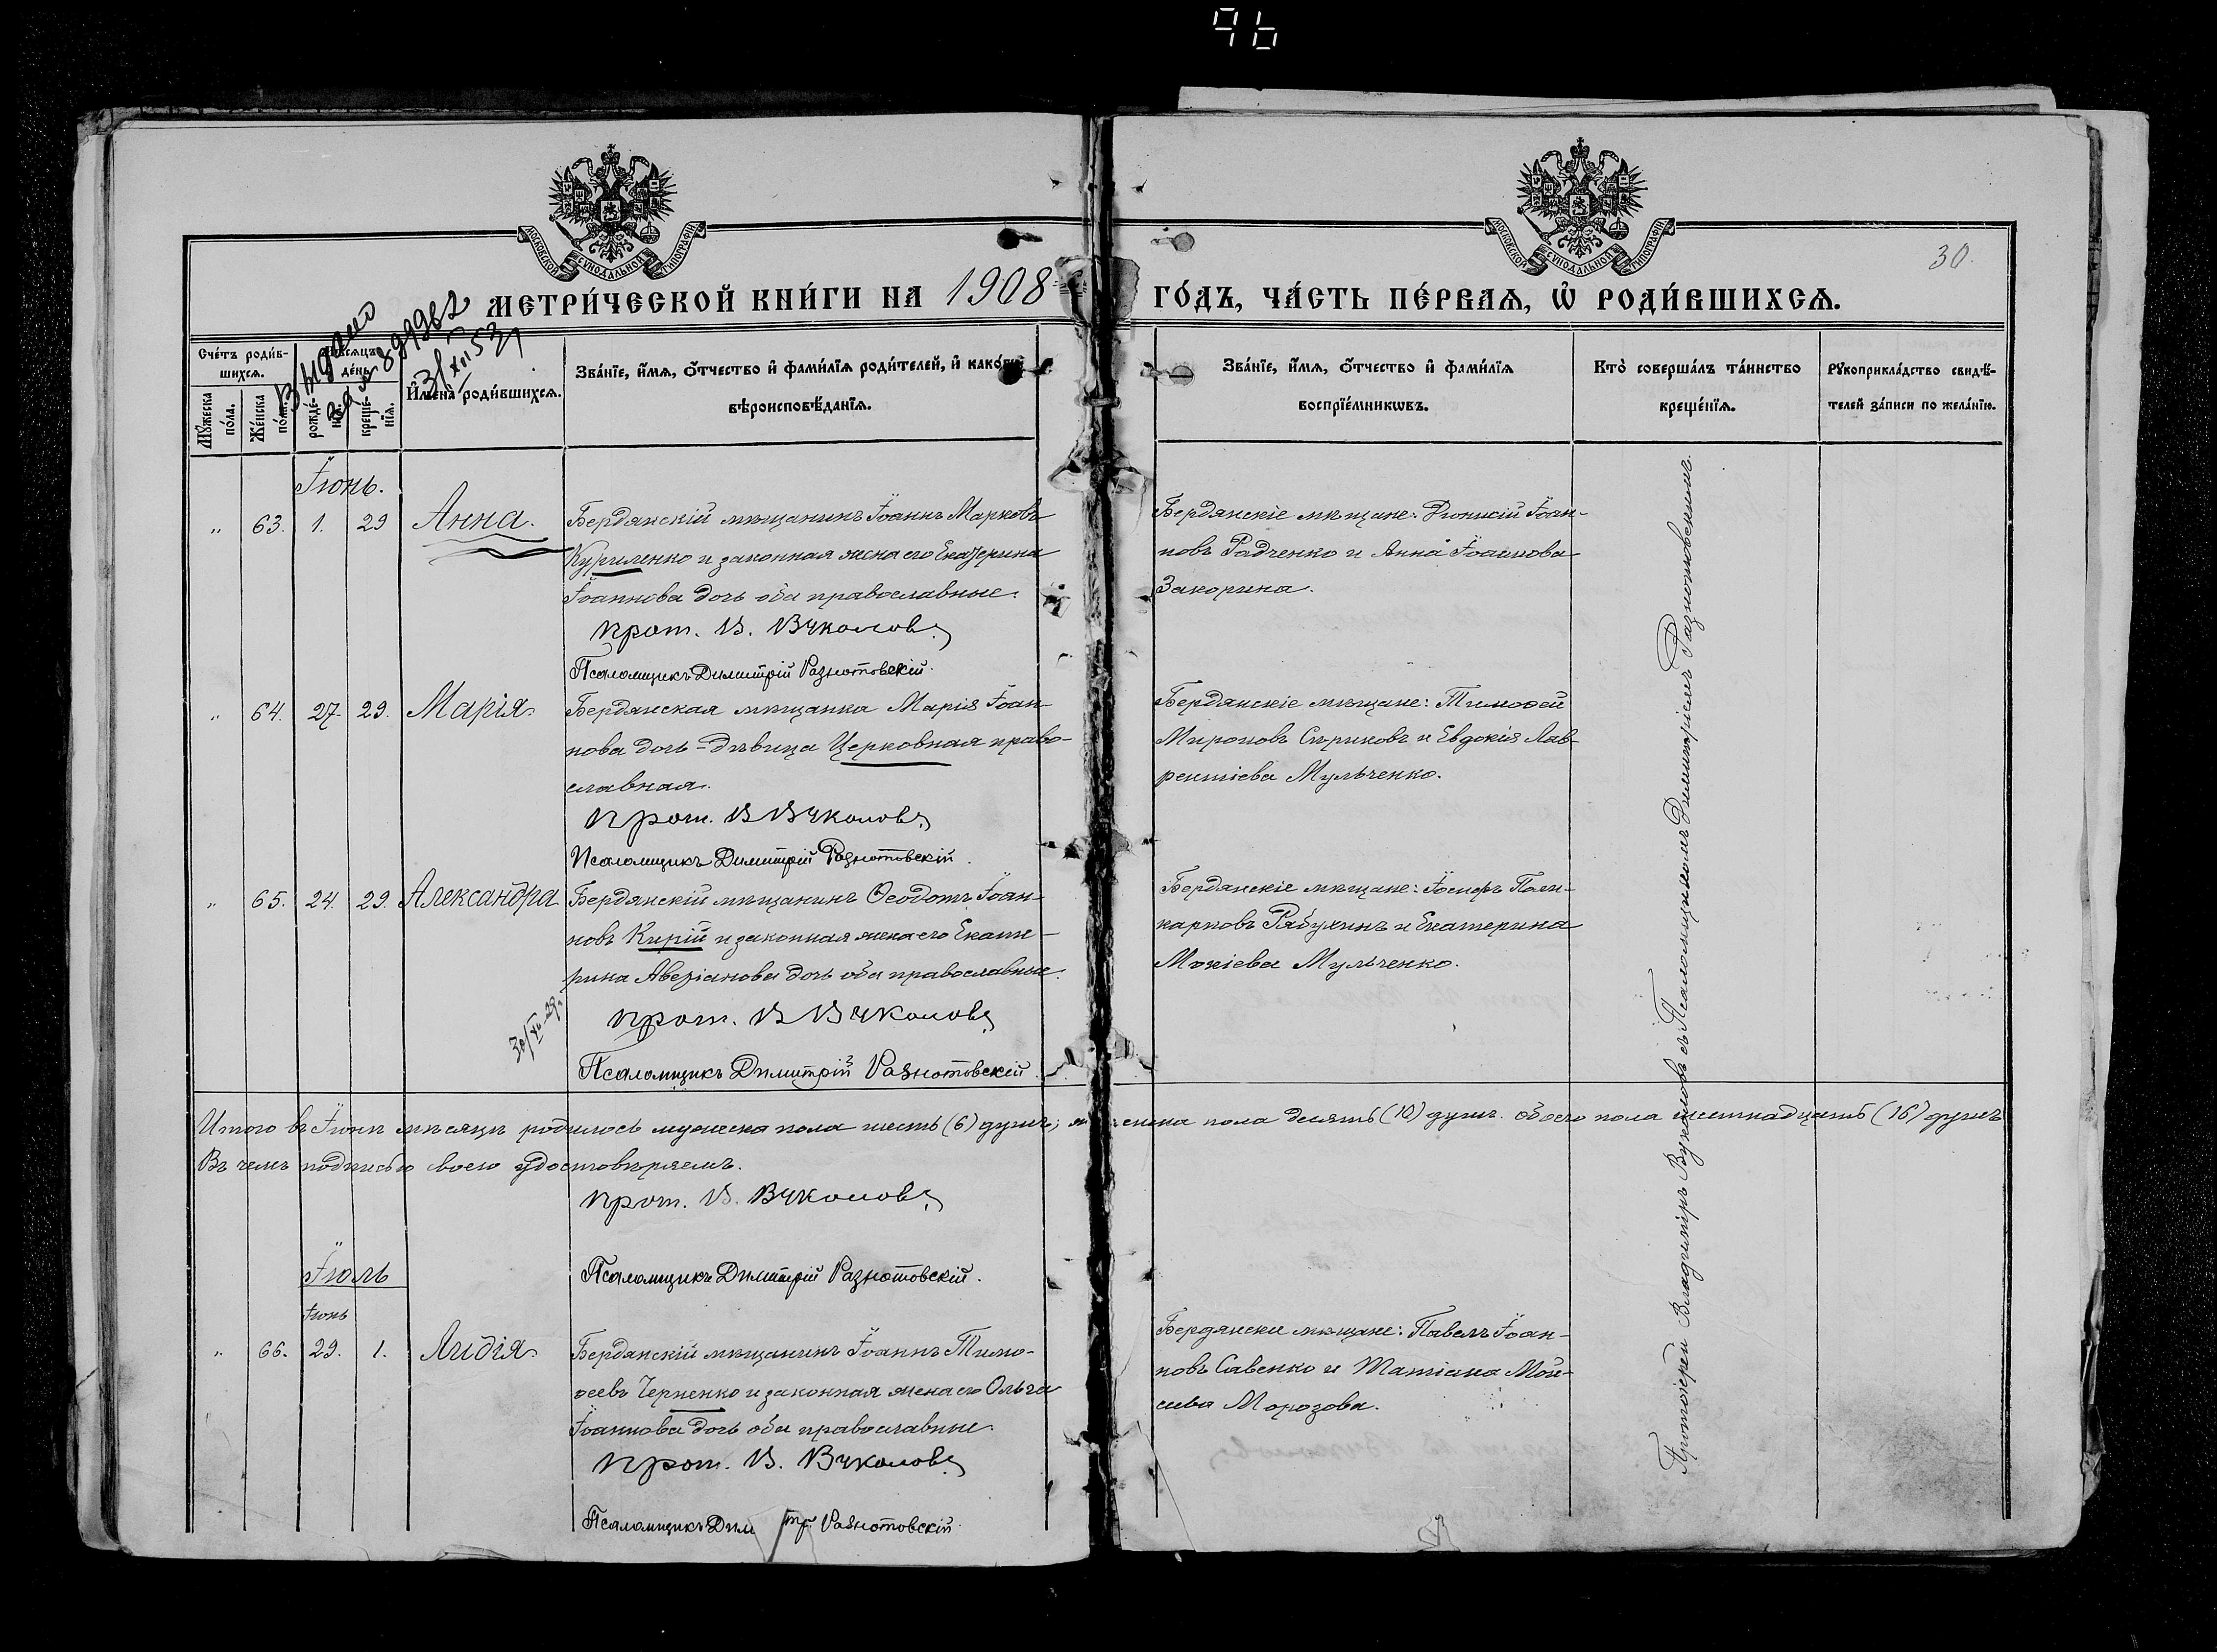 96
МОСКОВСКОЙ СѴНОДАЛЬНОЙ ТИПОГРАФІИ
МОСКОВСКОЙ СѴНОДАЛЬНОЙ ТИПОГРАФІИ
30.
МЕТРИ́ЧЕСКОЙ КНИ́ГИ НА 1908 ГО́ДЪ, ЧА́СТЬ ПЕ́РВАѦ, Ѡ҆ РОДИ́ВШИХСѦ.
Выдано
31/XII 53
Сче́тъ роди́в-
шихсѧ.
Мѣ́сѧцъ
де́нь
Мꙋ́жеска
по́ла.
Же́нска
по́ла.
рожде́-
нїѧ.
креще́-
нїѧ.
И҆мена̀ роди́вшихсѧ.
Зва́нїе, и҆́мѧ, ѻ҆́тчество и҆ фами́лїѧ роди́телей, и҆ како́гѡ
вѣроисповѣ́данїѧ.
Зва́нїе, и҆́мѧ, ѻ҆́тчество и҆ фами́лїѧ
воспрїе́мникѡвъ.
Кто̀ соверша́лъ та́инство
креще́нїѧ.
Рꙋкоприкла́дство свидѣ́-
телей за́писи по жела́нїю.
Іюнь.
„ 63. 1. 29 Анна. Бердянскій мѣщанинъ Іоаннъ Марковъ
Куриленко и законная жена его Екатерина
Іоаннова дочь оба православные.
Прот. В. Вуколовъ
Псаломщикъ Димитрій Разнотовскій.
Бердянскіе мѣщане: Діонисій Іоан-
новъ Радченко и Анна Іоаннова
Закорина.
„ 64. 27. 29. Марія. Бердянская мѣщанка Марія Іоан-
нова дочь - дѣвица Церковная право-
славная.
Прот. В Вуколовъ
Псаломщикъ Димитрій Разнотовскій.
Бердянскіе мѣщане: Тимоѳей
Мироновъ Сѣриковъ и Евдокія Лав-
рентіева Мульченко.
„ 65. 24. 29. Александра Бердянскій мѣщанинъ Ѳеодотъ Іоан-
новъ Кирій и законная жена его Екате-
рина Аверіанова дочь оба православные.
Прот. В Вуколовъ
Псаломщикъ Димитрій Разнотовскій
Бердянскіе мѣщане: Іосифъ Поли-
карповъ Рябухинъ и Екатерина
Мокіева Мульченко.
Итого въ Іюнѣ мѣсяцѣ родилось мужеска пола шесть (6) душъ; женска пола десять (10) душъ. обоего пола шестнадцать (16) душъ
Въ чемъ подписью своею удостовѣряемъ.
Прот. В. Вуколовъ
Псаломщикъ Димитрій Разнотовскій.
Іюль
Іюнь
„ 66. 29. 1. Лидія. Бердянскій мѣщанинъ Іоаннъ Тимо-
ѳеевъ Черненко и законная жена его Ольга
Іоаннова дочь оба православные.
Прот. В. Вуколовъ
Псаломщикъ Дим тр. Разнотовскій.
Бердянскіе мѣщане: Павелъ Іоан-
новъ Савенко и Татіана Мои-
сеева Морозова.
Протоіерей Владиміръ Вуколовъ съ Псаломщикомъ Димитріемъ Разнотовскимъ.